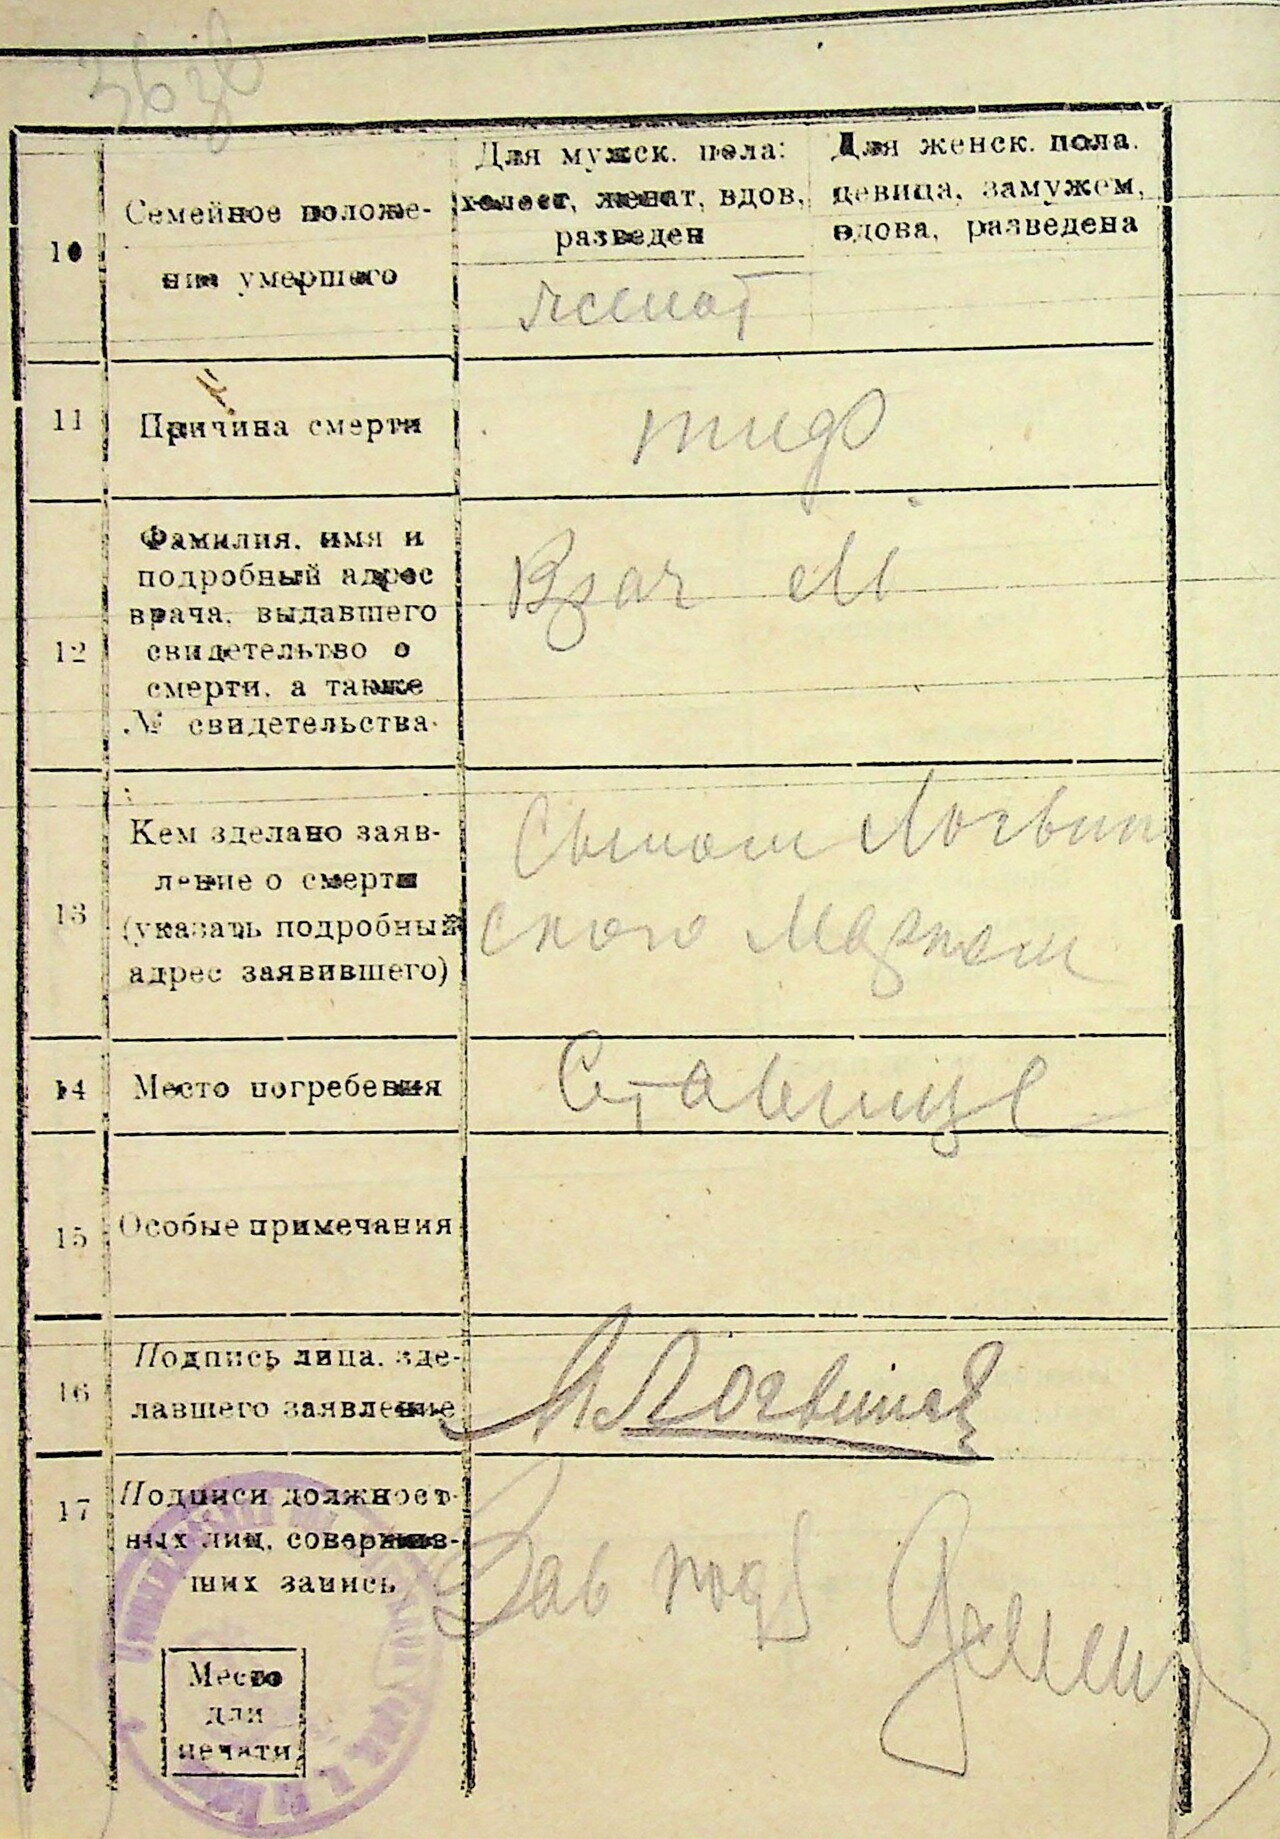 Для мужск. пола: Для женск. пола.
холост, женат, вдов, девица, замужем,
разведен вдова, разведена
10 Семейное положе-
ние умершего
женат
11 Причина смерти тиф
Фамилия, имя и
подробный адрес
врача, выдавшего
12 свидетельство о
смерти, а также
№ свидетельства.
Врач
Кем зделано заяв-
ление о смерти
13 (указать подробный
адрес заявившего)
Сыном Логвин
ского Марком
14 Место погребения Ставище
15 Особые примечания
16 Подпись лица, зде-
лавшего заявление
М Логвинск
17 Подписи должност-
ных лиц, совершив-
ших запись
Зав под
Место
для
печати